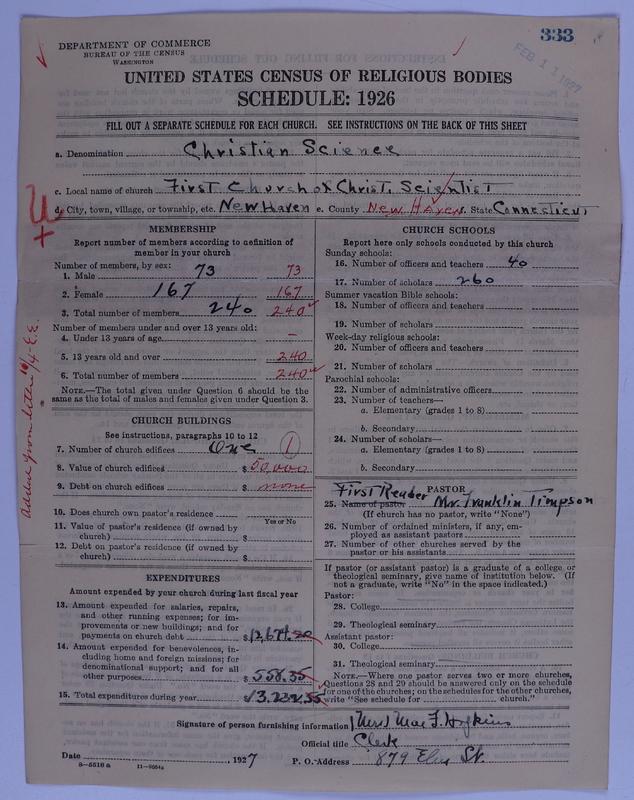 333
FEB 11 1927
DEPARTMENT OF COMMERCE
BUREAU OF THE CENSUS
WASHINGTON
UNITED STATES CENSUS OF RELIGIOUS BODIES
SCHEDULE: 1926
FILL OUT A SEPARATE SCHEDULE FOR EACH CHURCH. SEE INSTRUCTIONS ON THE BACK OF THIS SHEET
a. Denomination Christian Science
c. Local name of church First Church of Christ, Scientist
d. City, town, village, or township, etc. New Haven e. County New Haven. State Connecticut
MEMBERSHIP
Report number of members according to definition of
member in your church
Number of members, by sex:
1. Male 73 73
2. Female 167 167
3. Total number of members 240 240
Number of members under and over 13 years old:
4. Under 13 years of age –
5. 13 years old and over 240
6. Total number of members 240
NOTE.—The total given under Question 6 should be the
same as the total of males and females given under Question 3.
CHURCH BUILDINGS
See instructions, paragraphs 10 to 12
7. Number of church edifices One 1
8. Value of church edifices $50,000
9. Debt on church edifices $ none
10. Does church own pastor's residence
Yes or No
11. Value of pastor's residence (if owned by
church) $
12. Debt on pastor's residence (if owned by
church) $
EXPENDITURES
Amount expended by your church during last fiscal year
13. Amount expended for salaries, repairs,
and other running expenses; for im-
provements or new buildings; and for
payments on church debt $
14. Amount expended for benevolences, in-
cluding home and foreign missions; for
denominational support; and for all
other purposes $ 558.35
15. Total expenditures during year
CHURCH SCHOOLS
Report here only schools conducted by this church
Sunday schools:
16. Number of officers and teachers 40
17. Number of scholars 260
Summer vacation Bible schools:
18. Number of officers and teachers
19. Number of scholars
Week-day religious schools:
20. Number of officers and teachers
21. Number of scholars
Parochial schools:
22. Number of administrative officers
23. Number of teachers—
a. Elementary (grades 1 to 8)
b. Secondary
24. Number of scholars—
a. Elementary (grades 1 to 8)
b. Secondary
PASTOR
First Reader
25. Name of pastor Mr. Franklin Timpson
(If church has no pastor, write "None")
26. Number of ordained ministers, if any, em-
ployed as assistant pastors
27. Number of other churches served by the
pastor or his assistants
If pastor (or assistant pastor) is a graduate of a college or
theological seminary, give name of institution below. (If
not a graduate, write "No" in the space indicated.)
Pastor:
28. College
29. Theological seminary
Assistant pastor:
30. College
31. Theological seminary
NOTE.—Where one pastor serves two or more churches,
Questions 28 and 29 should be answered only on the schedule
for one of the churches; on the schedules for the other churches,
write "See schedule for church."
Signature of person furnishing information Mrs. Mae F. Hopkins
Official title Clerk
Date , 1927 P. O. Address 879 Elm St.
8—5518 a 11—9554a